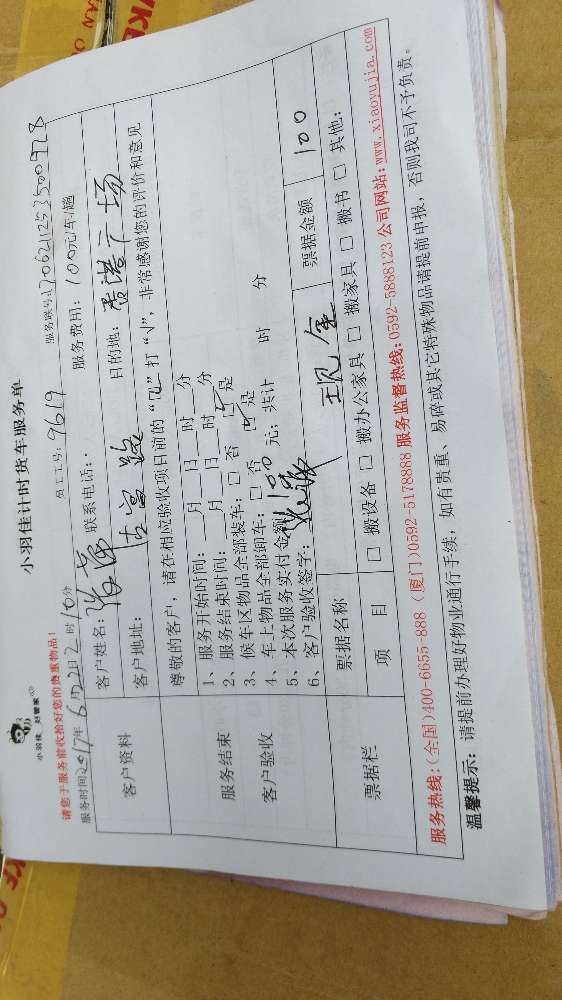 小羽佳 好管家
小羽佳计时货车服务单
请您于服务前收拾好您的贵重物品!
员工工号: 9619
服务时间: 2017年6月2日2时10分
联系电话:
服务费用: 100元/车/趟
客户资料
客户姓名:
客户地址:
目的地: 香港广场
尊敬的客户, 请在相应验收项目前的“口”打“√”, 非常感谢您的评价和意见
服务结束
客户验收
1、服务开始时间: 月 日 时 分
2、服务结束时间: 月 日 时 分
3、候车区物品全部装车: □ 否 ☑ 是
4、车上物品全部卸车: □ 否 ☑ 是
5、本次服务实付金额 100 元; 共计 时 分
6、客户验收签字:
票据栏
票据名称 现金 票据金额 100
项 目 □ 搬设备 □ 搬办公家具 □ 搬家具 □ 搬书 □ 其他:
服务热线: (全国)400-6655-888 (厦门)0592-5178888 服务监督热线: 0592-5888123 公司网站: www.xiaoyujia.com
温馨提示: 请提前办理好物业通行手续, 如有贵重、易碎或其它特殊物品请提前申报, 否则我司不予负责。